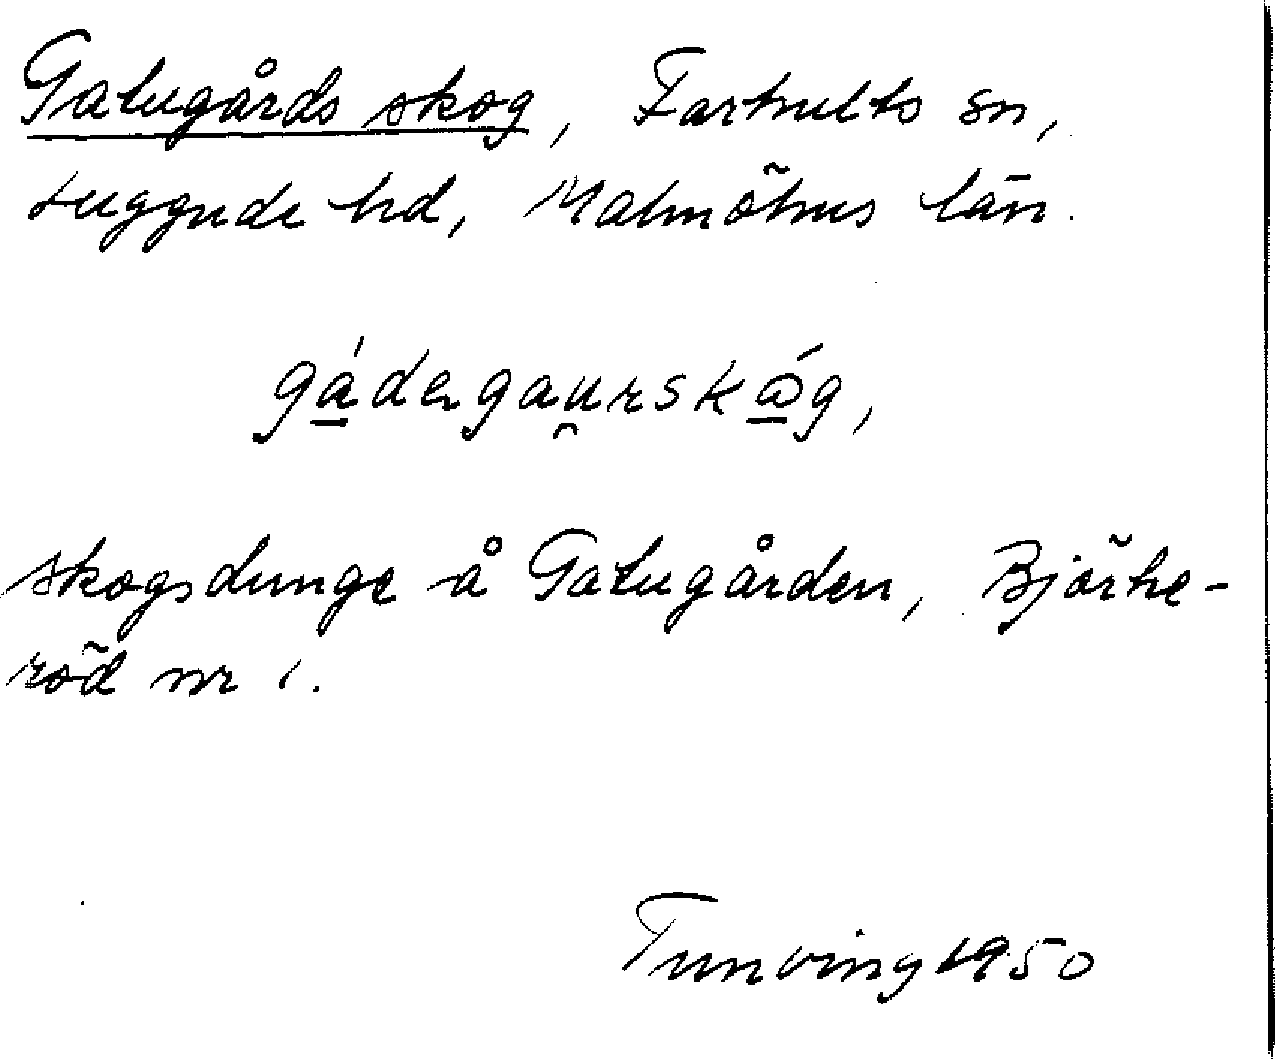 Gatugårds skog, Farhults sn,
Luggude hd, Malmöhus län.
gá̱dergau̯rskɷ̱́g,
skogsdunge å Gatugården, Björke-
röd nr 1.
Tunving 1950